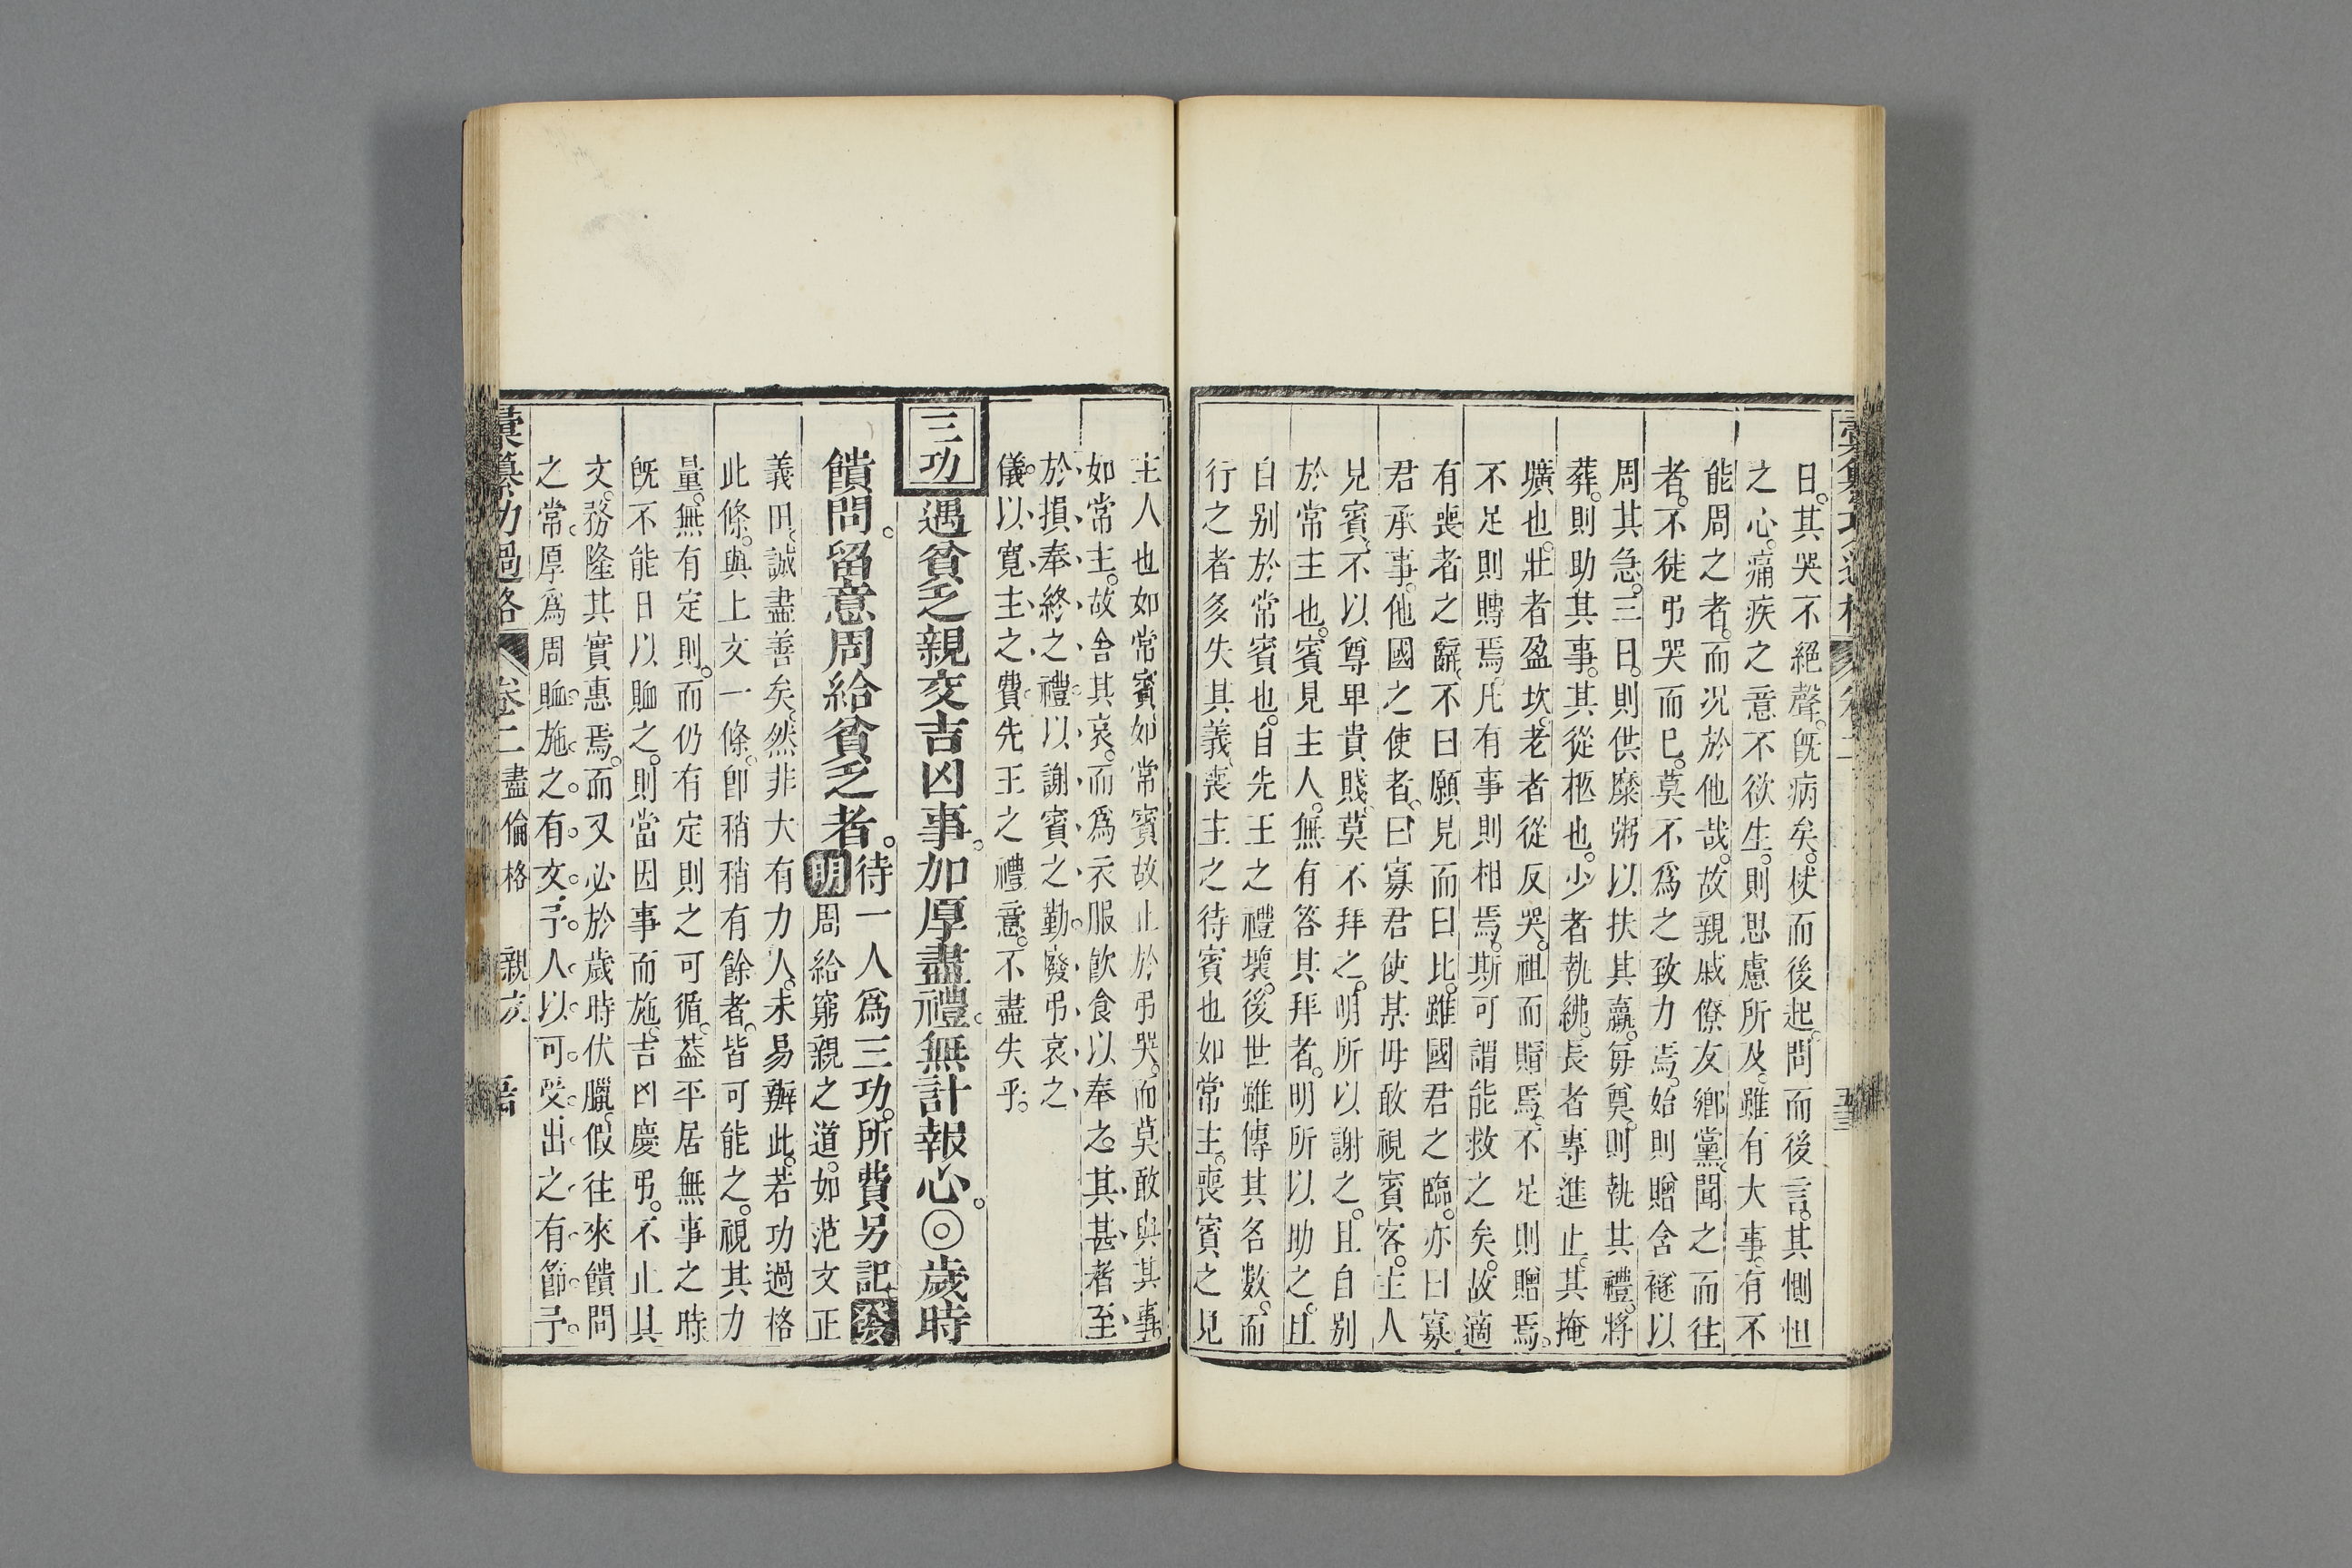 日。其哭不絕聲。旣病矣。杖而後起。問而後言。其惻怛
之心。痛疾之意不欲生。則思慮所及。雖有大事。有不
能周之者。而況於他哉。故親戚僚友鄉黨。聞之而往
者。不徒弔哭而已。莫不爲之致力焉。始則贈含襚以
周其急。三日。則供糜粥以扶其羸。每奠。則執其禮。將
葬。則助其事。其從柩也。少者執紼。長者專進止。其掩
壙也。壯者盈坎。老者從反哭。祖而賵焉。不足則贈焉。
不足則賻焉。凡有事則相焉。斯可謂能救之矣。故適
有喪者之辭。不曰願見而曰比。雖國君之臨。亦曰寡
君承事。他國之使者。曰寡君使某毋敢視賓客。主人
見賓。不以尊卑貴賤。莫不拜之。明所以謝之。且自别
於常主也。賓見主人。無有答其拜者。明所以助之。且
自别於常賓也。自先王之禮壞。後世雖傳其名數。而
行之者多失其義。喪主之待賓也如常主。喪賓之見
主人也如常賓如常賓故止於弔哭。而莫敢與其事。
如常主。故舍其哀。而爲衣服飮食以奉之。其甚者至
於損奉終之禮以謝賓之勤。廢弔哀之
儀。以寬主之費。先王之禮意。不盡失乎。
三功 遇貧乏親交吉凶事。加厚盡禮。無計報心。◎歲時
饋問。留意周給貧乏者。
待一人爲三功。所費另記
明 周給窮親之道。如范文正
義田。誠盡善矣。然非大有力人。未易辦此。若功過格
此條。與上文一條。卽稍稍有餘者。皆可能之。視其力
量。無有定則。而仍有定則之可循。葢平居無事之時
旣不能日以賉之。則當因事而施。吉凶慶弔。不止具
文。務隆其實惠焉。而又必於歲時伏臘。假往來饋問
之常。厚爲周賉。施之有文。予人以可受。出之有節。予
彙纂功過格 卷二 盡倫格 親友